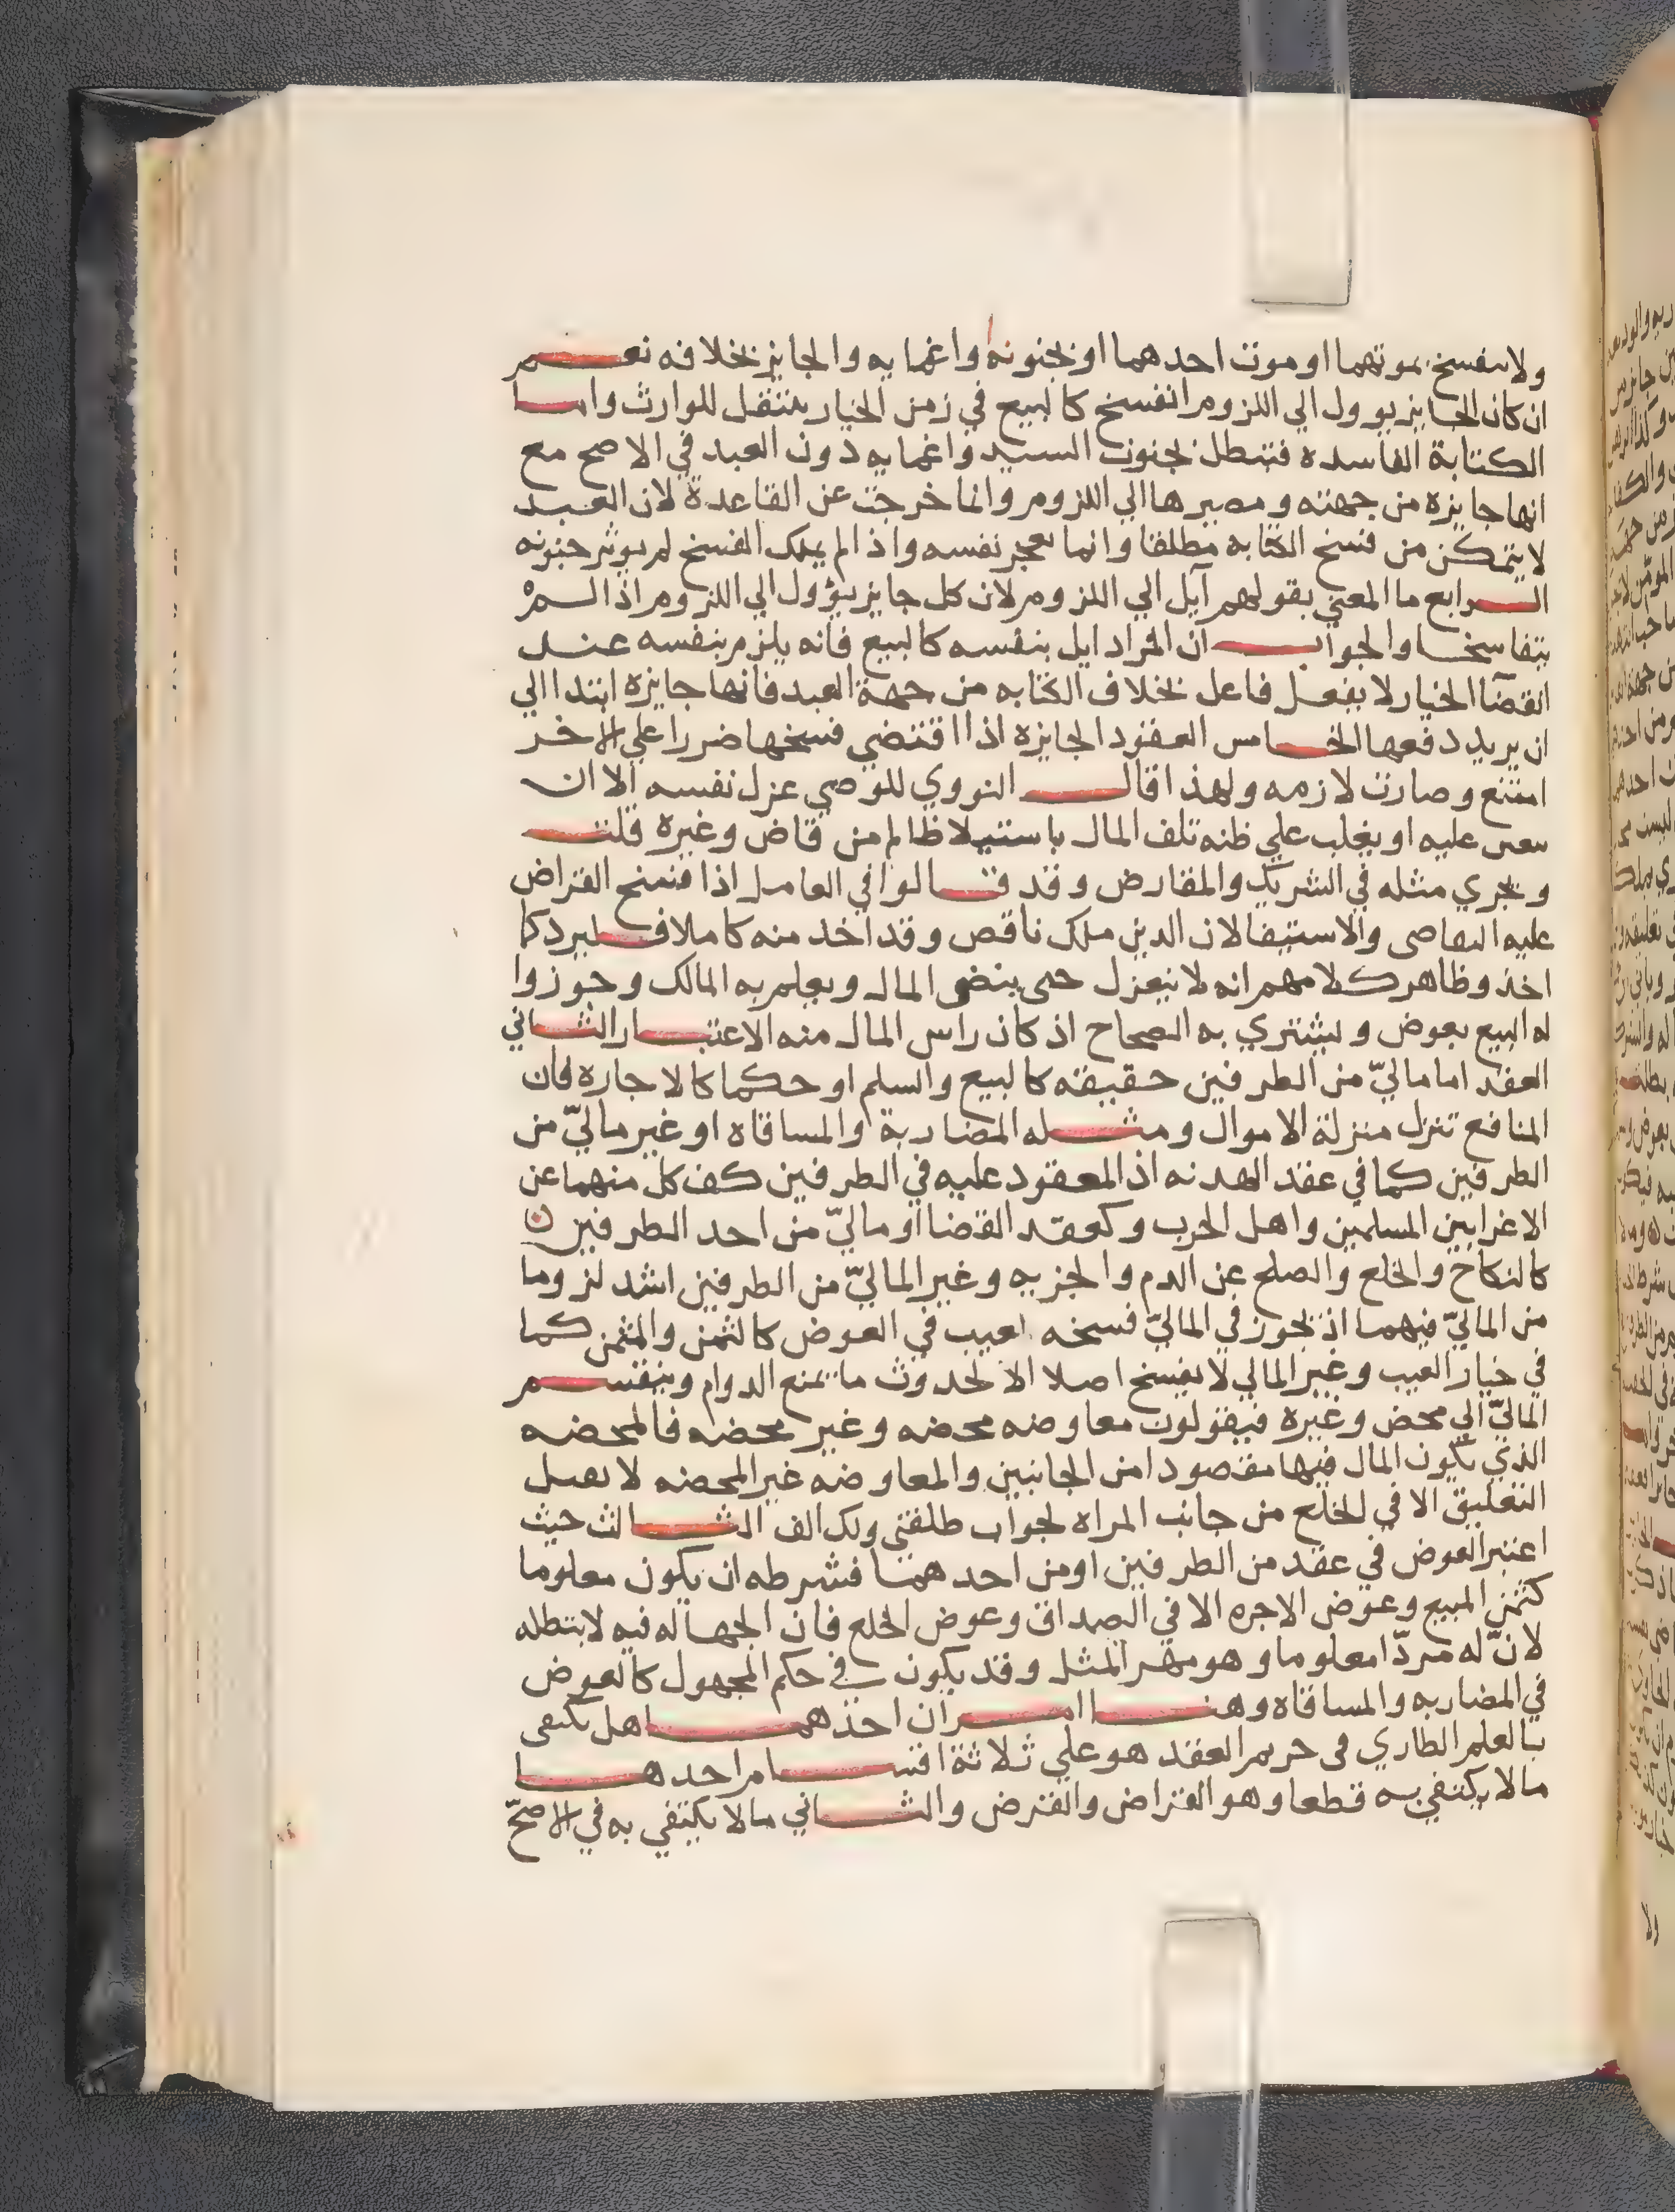 ولا ينفسخ بموتهما او موت احدهما او بجنونه واغمايه والجايز بخلافه نعم
ان كان الجايز يوول الي اللزوم انفسخ كالبيع في زمن الخيار ينتقل للوارث واما
الكتابة الفاسده فتبطل بجنون السيد واغمايه دون العبد في الاصح مع
انها جايزه من جهته ومصيرها الي اللزوم وانما خرجت عن القاعدة لان العبد
لا يتمكن من فسخ الكتابه مطلقا وانما يعجز نفسه واذا لم يملك الفسخ لم يوثر جنونه
الرابع ما المعني بقولهم آيل الي اللزوم لان كل جايز يؤول الي اللزوم اذا لم
يتفاسخا والجواب ان المراد ايل بنفسه كالبيع فانه يلزم بنفسه عند
انقضا الخيار لا بفعل فاعل بخلاف الكتابه من جهة العبد فانها جايزه ابتدا الي
ان يريد دفعها الخامس العقود الجايزه اذا اقتضي فسخها ضررا علي الاخر
امتنع وصارت لازمه ولهذا قال النووي للوصي عزل نفسه الا ان
يتعين عليه او يغلب علي ظنه تلف المال باستيلا ظالم من قاض وغيره قلت
ويجري مثله في الشريك والمقارض وقد قالوا في العامل اذا فسخ القراض
عليه التقاضي والاستيفا لان الدين ملك ناقص وقد اخد منه كاملا فليرد كما
اخذ وظاهر كلامهم انه لا ينعزل حتي ينض المال ويعلم به المالك وجوزوا
له البيع بعوض وليشتري به الصحاح اذ كان راس المال منه الاعتبار الثاني
العقد اما ماليّ من الطرفين حقيقة كالبيع والسلم او حكما كالاجاره فان
المنافع تنزل منزلة الاموال ومثله المضاربة والمساقاه او غير ماليّ من
الطرفين كما في عقد الهدنه اذ المعقود عليه في الطرفين كف كل منهما عن
الاغرا بين المسلمين واهل الحرب وكعقد القضا او ماليّ من احد الطرفين
كالنكاح والخلع والصلح عن الدم والجزيه وغير الماليّ من الطرفين اشد لزوما
من الماليّ فيهما اذ يجوز في الماليّ فسخه لعيب في العوض كالثمن والمثمن كما
في خيار العيب وغير المالي لا يفسخ اصلا الا لحدوث ما يمنع الدوام وينقسم
الماليّ الي محض وغيره فيقولون معاوضه محضه وغير محضه فالمحضه
الذي يكون المال فيها مقصودا من الجانبين والمعاوضه غير المحضه لا يقبل
التعليق الا في الخلع من جانب المراه لجواب طلقني ولك الف الثالث حيث
اعتبر العوض في عقد من الطرفين او من احدهما فشرطه ان يكون معلوما
كثمن المبيع وعوض الاجره الا في الصداق وعوض الخلع فان الجهاله فيه لا تبطله
لانّ له مردّا معلوما وهو مهر المثل وقد يكون في حكم المجهول كالعوض
في المضاربه والمساقاه وهنا امران احدهما هل يكتفي
بالعلم الطاري في حريم العقد هو علي ثلاثة اقسام احدها
ما لا يكتفي به قطعا وهو القراض والقرض والثاني ما لا يكتفي به في الاصحّ